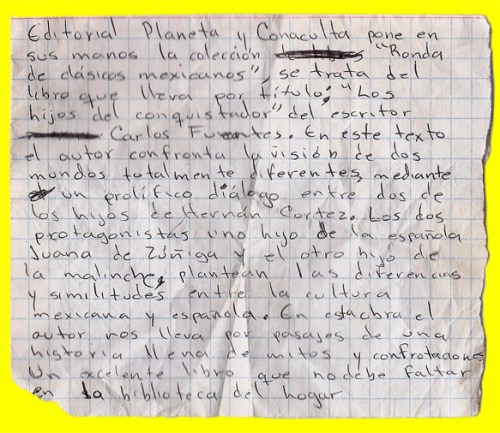 Editorial Planeta y Conaculta pone en
sus manos la colección "Ronda
de clásicos mexicanos", se trata del
libro que lleva por título; "Los
hijos del conquistador" del escritor
Carlos Fuentes. En este texto
el autor confronta la visión de dos
mundos totalmente diferentes, mediante
un prolífico diálogo entre dos de
los hijos de Hernán Cortez. Los dos
protagonistas uno hijo de la española
Juana de Zúñiga y el otro hijo de
la malinche, plantean las diferencias
y similitudes entre la cultura
mexicana y española. En esta obra el
autor nos lleva por pasajes de una
historia llena de mitos y confrotaciones
Un excelente libro que no debe faltar
en la biblioteca del hogar